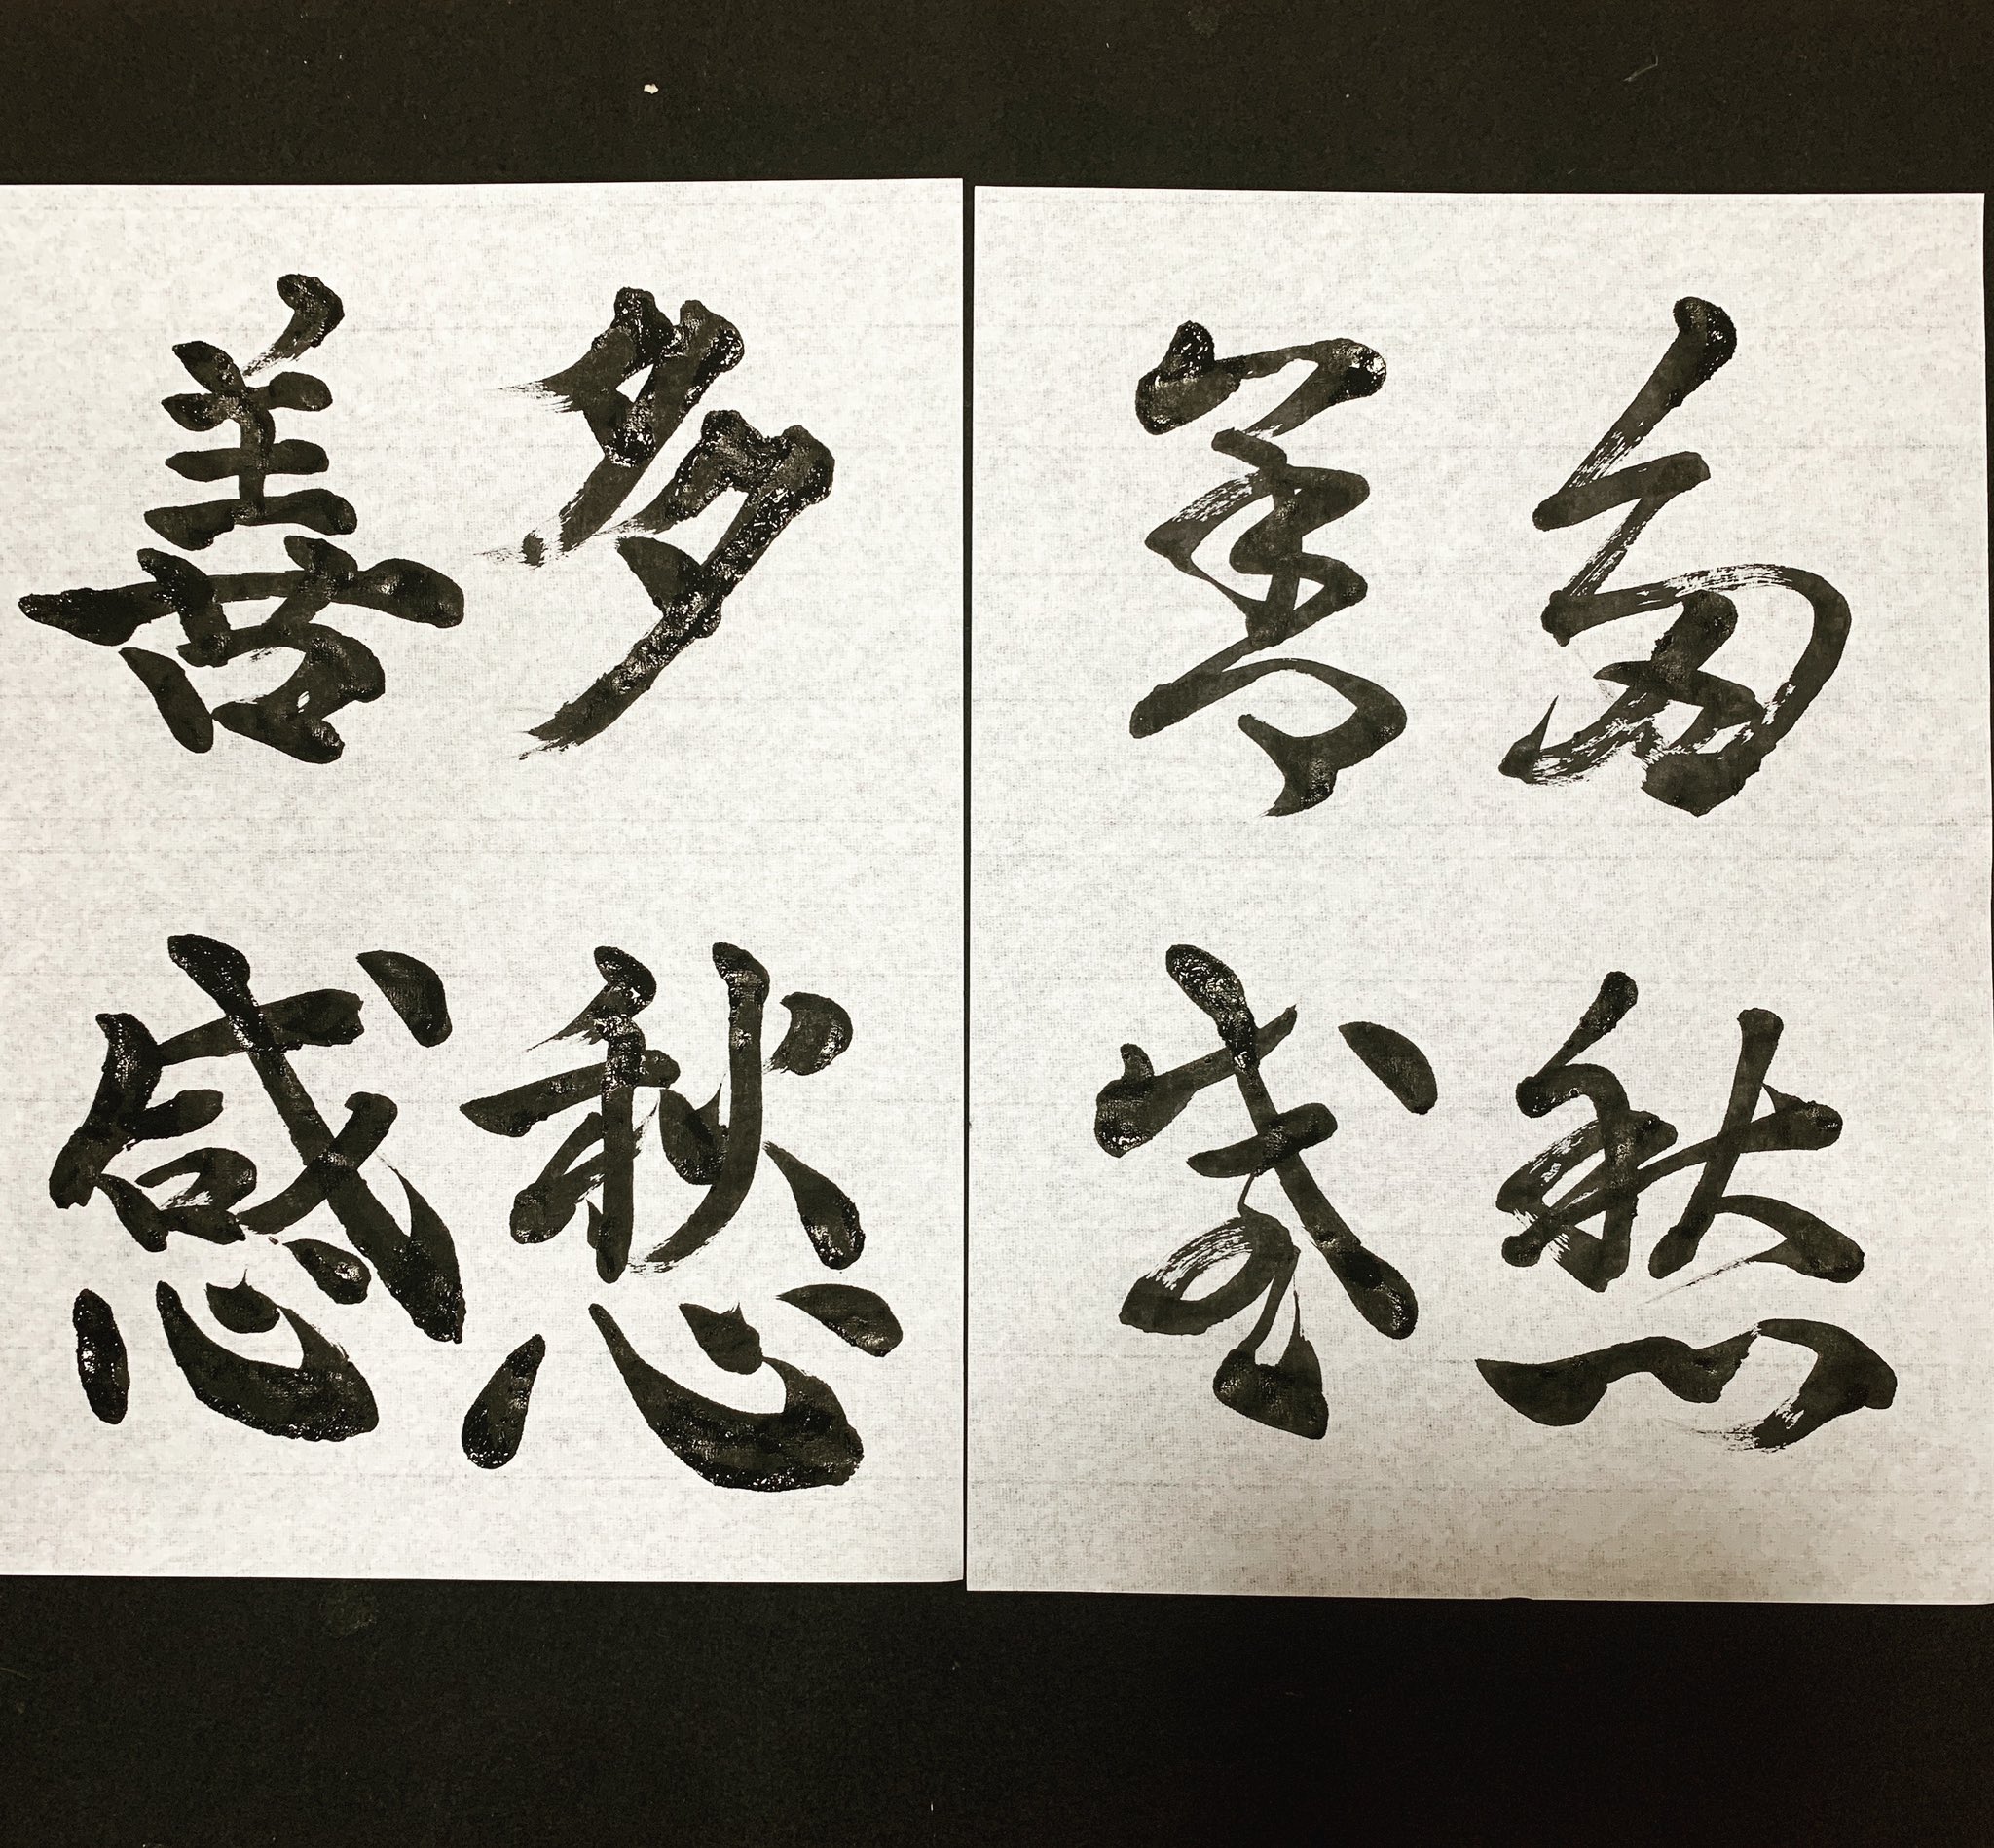 多愁
善感
多愁
善感